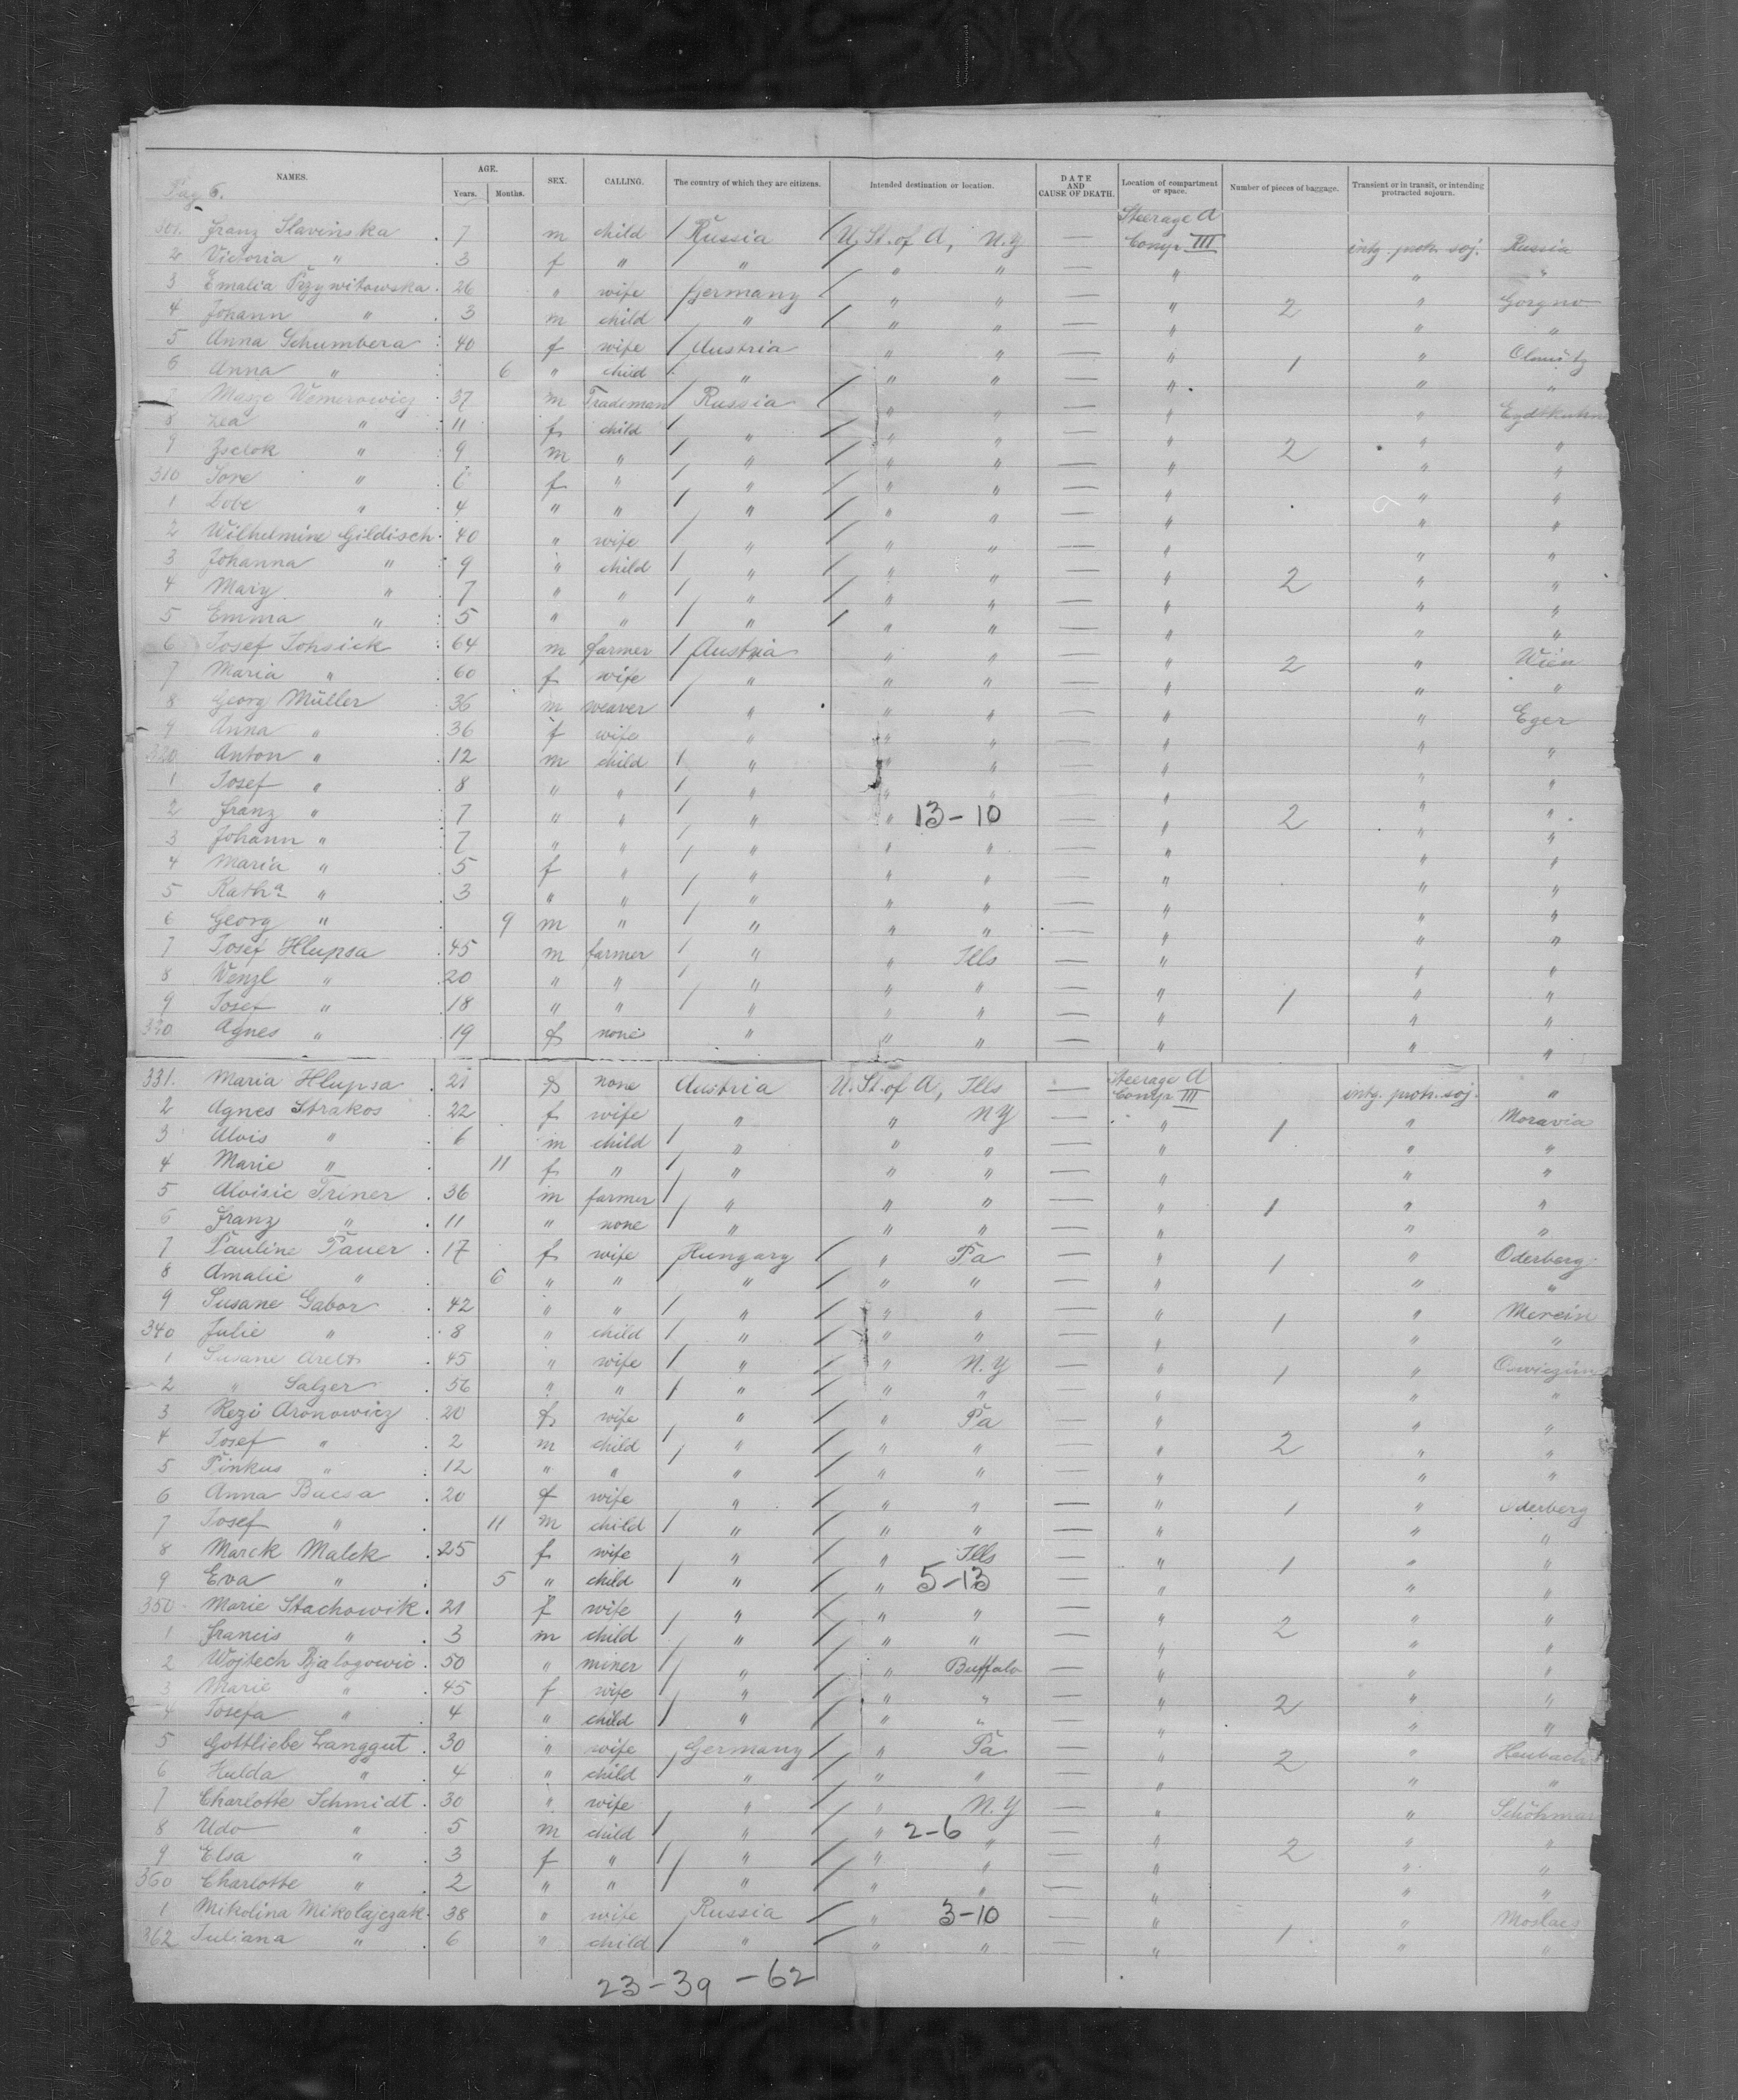 NAMES. AGE. Years. Months. SEX. CALLING. The country of which they are citizens. Intended destination or location. DATE AND CAUSE OF DEATH. Location of compartment or space. Number of pieces of baggage. Transient or in transit, or intending protracted sojourn.
Pag 6.
301. Franz Slavinska 7 m child / Russia / U. St. of A, N.Y — Steerage A Compr III intg. protr. soj. Russia
2 Victoria " 3 f " " / " " — " " "
3 Emalia Przywitowska 26 " wife Germany / " " — " 2 " Gorgno
4 Johann " 3 m child / " / " " — " " "
5 Anna Schumbera 40 f wife / Austria " " — " 1 " Olmütz
6 Anna " 6 " child / " / " " — " " "
7 Masze Wemerowicz 37 m Trademan / Russia / " " — " " Eydtkuhn
8 Lea " 11 f child / " / " " — " 2 " "
9 " 9 m " / " / " " — " " "
310 Sore " 6 f " / " / " " — " " "
1 Dobe " 4 " " / " / " " — " " "
2 Wilhelmine Gildisch 40 " wife / " " " — " " "
3 Johanna " 9 " child / " / " " — " 2 " "
4 Mary " 7 " " / " / " " — " " "
5 Emma " 5 " " / " / " " — " " "
6 Josef Johsick 64 m farmer / Austria " " — " 2 " Wien
7 Maria " 60 f wife / " " " — " " "
8 Georg Müller 36 m weaver / " " " — " " Eger
9 Anna " 36 f wife " " " — " " "
320 Anton " 12 m child / " " " — " " "
1 Josef " 8 " " / " " " — " " "
2 Franz " 7 " " / " " 13-10 — " 2 " "
3 Johann " 7 " " / " " " — " " "
4 Maria " 5 f " / " " " — " " "
5 Katha " 3 " " / " " " — " " "
6 Georg " 9 m " / " " " — " " "
7 Josef Hlupsa 45 m farmer / " " Ills — " " "
8 Wenzl " 20 " " / " " " — " " "
9 Josef " 18 " " / " " " — " 1 " "
330 Agnes " 19 f none " " " — " " "
331. Maria Hlupsa 21 f none Austria U. St. of A, Ills — Steerage A Compr III intg. protr. soj. "
2 Agnes Strakos 22 f wife " " NY — " 1 " Moravia
3 Alois " 6 m child / " " " — " " "
4 Marie " 11 f " / " " " — " " "
5 Aloisie Triner 36 m farmer / " " " — " 1 " "
6 Franz " 11 " none / " " " — " " "
7 Pauline Pauer 17 f wife Hungary / " Pa — " 1 " Oderberg
8 Amalie " 6 " " " / " " — " " "
9 Susane Gabor 42 " " / " / " " — " 1 " Merein
340 Julie " 8 " child / " / " " — " " "
1 Susane Arelt 45 " wife / " / " N.Y — " 1 "
2 " Salzer 56 " " / " / " " — " " "
3 Rezi Aronowicz 20 f wife " / " Pa — " " "
4 Josef " 2 m child / " / " " — " 2 " "
5 Pinkus " 12 " " " / " " — " " "
6 Anna Bacsa 20 f wife " / " " — " 1 " Oderberg
7 Josef " 11 m child / " / " " — " " "
8 Marck Malek 25 f wife " / " Ills — " 1 " "
9 Eva " 5 " child / " / " 5-13 — " " "
350 Marie Stachowik 21 f wife / " / " " — " 2 " "
1 Francis " 3 m child / " / " " — " " "
2 Wojtech Bjalogowic 50 " miner / " / " Buffalo — " " "
3 Marie " 45 f wife / " / " " — " 2 " "
4 Josefa " 4 " child / " / " " — " " "
5 Gottliebe Langgut 30 " wife / Germany / " Pa — " 2 " Heubach
6 Hulda " 4 " child / " / " " — " " "
7 Charlotte Schmidt 30 " wife " / " N.Y — " "
8 Udo " 5 m child / " / " 2-6 " — " 2 " "
9 Elsa " 3 f " / " / " " — " " "
360 Charlotte " 2 " " / " / " " — " " "
1 Mikolina Mikolajczak 38 " wife Russia / " 3-10 — " 1 "
362 Juliana " 6 " child / " / " " — " " "
23-39-62